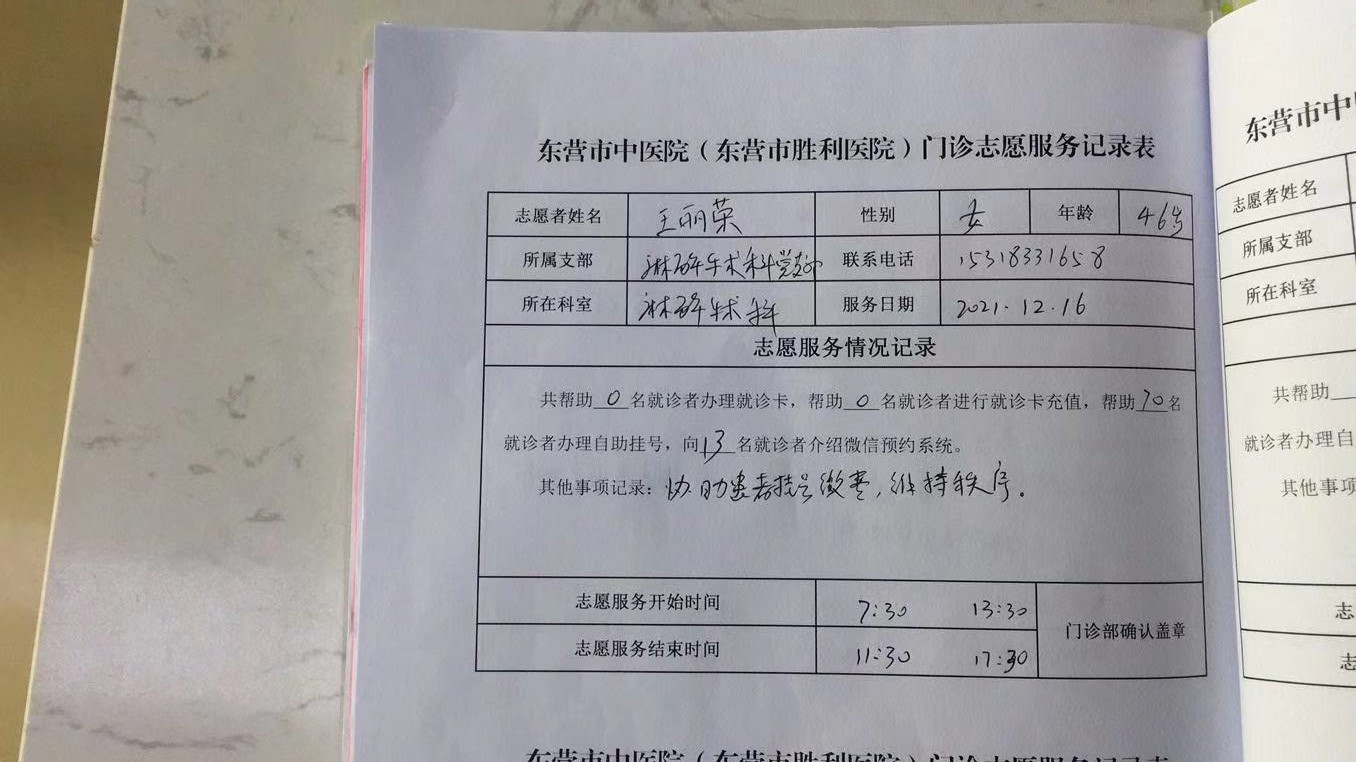 东营市中医院（东营市胜利医院）门诊志愿服务记录表
志愿者姓名 王丽荣 性别 女 年龄 46岁
所属支部 麻醉手术科党支部 联系电话 15318331658
所在科室 麻醉手术科 服务日期 2021.12.16
志愿服务情况记录
共帮助 0 名就诊者办理就诊卡，帮助 0 名就诊者进行就诊卡充值，帮助 70 名
就诊者办理自助挂号，向 13 名就诊者介绍微信预约系统。
其他事项记录：协助患者挂号缴费，维持秩序。
志愿服务开始时间 7:30 13:30
门诊部确认盖章
志愿服务结束时间 11:30 17:30
东营市中医院（东营市胜利医院）门诊志愿服务记录表
东营市中
志愿者姓名
所属支部
所在科室
共帮助
就诊者办理自
其他事项
志
志